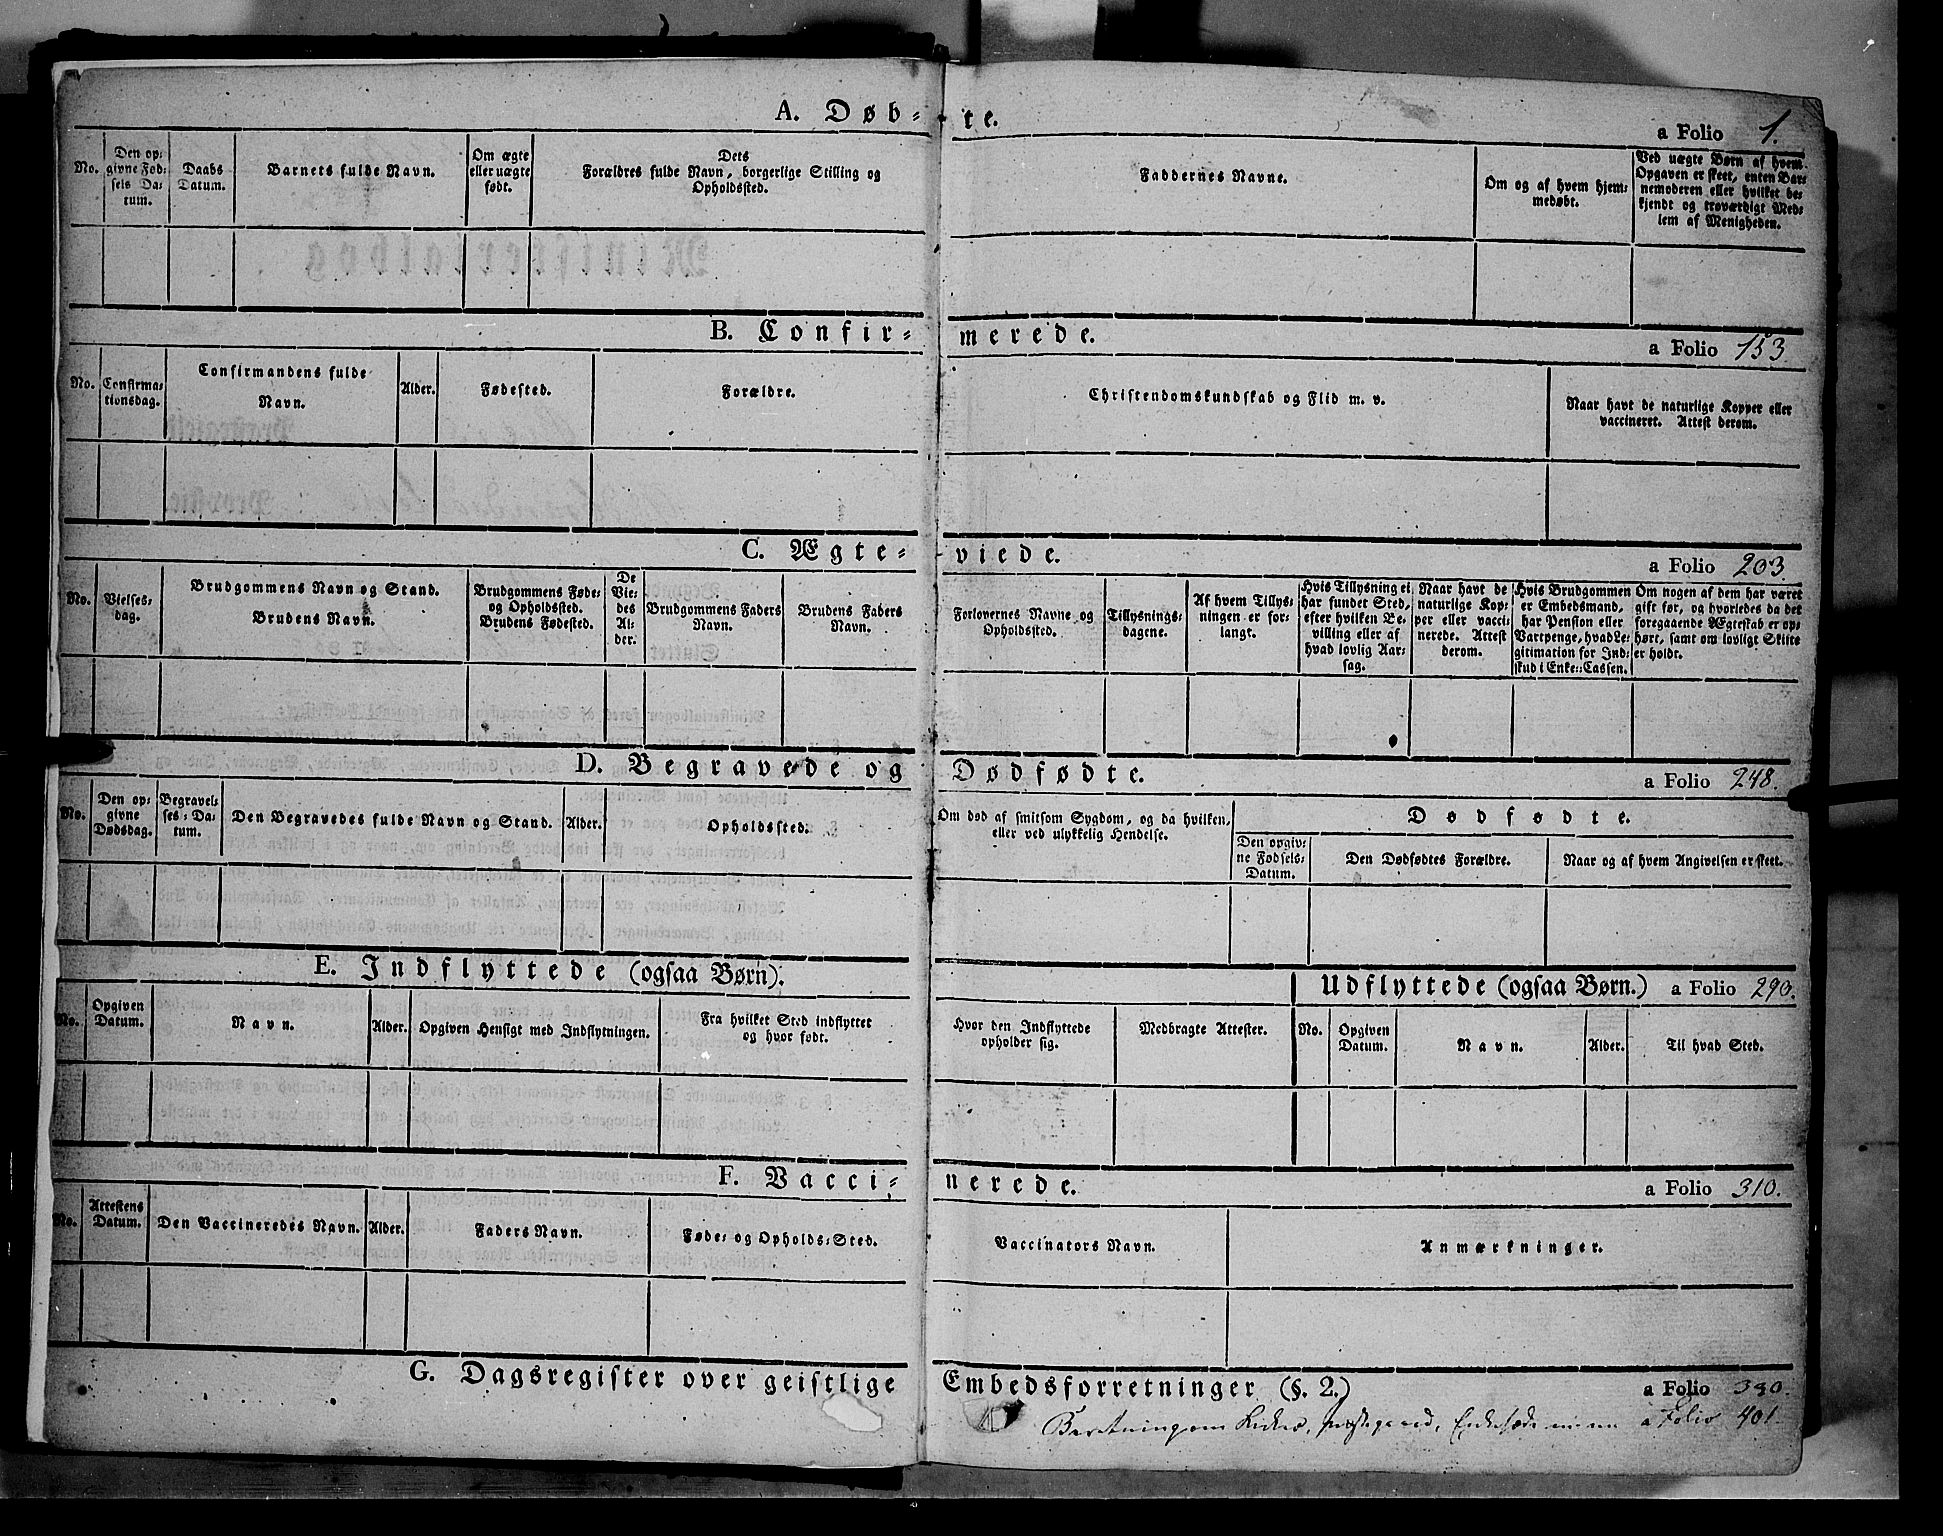 A. Døb-te.
a Folio 1.
No.
Den op-
givne Fød-
sels Da-
tum.
Daabs
Datum.
Barnets fulde Navn.
Om ægte
eller uægte
født.
Dets
Forældres fulde Navn, borgerlige Stilling og
Opholdssted.
Faddernes Navne.
Om og af hvem hjem-
medøbt.
Ved uægte Børn af hvem
Opgaven er skeet, enten Bar-
nemoderen eller hvilket be-
kjendt og troværdigt Med-
lem af Menigheden.
B. Confir-merede.
a Folio 153.
No.
Confirma-
tionsdag.
Confirmandens fulde
Navn.
Alder.
Fødested.
Forældre.
Christendomskundskab og Flid m. v.
Naar havt de naturlige Kopper eller
vaccineret. Attest derom.
C. Ægte-viede.
a Folio 203.
No.
Vielses-
dag.
Brudgommens Navn og Stand.
Brudens Navn.
Brudgommens Føde-
og Opholdssted.
Brudens Fødested.
De
Vie-
des
Al-
der.
Brudgommens Faders
Navn.
Brudens Faders
Navn.
Forlovernes Navne og
Opholdssted.
Tillysnings-
dagene.
Af hvem Tillys-
ningen er for-
langt.
Hvis Tillysning ei
har fundet Sted,
efter hvilken Be-
villing eller af
hvad lovlig Aar-
sag.
Naar havt de
naturlige Kop-
per eller vacci-
nerede. Attest
derom.
Hvis Brudgommen
er Embedsmand,
har Pension eller
Vartpenge, hvad Le-
gitimation for Ind-
skud i Enke-Cassen.
Om nogen af dem har været
gift før, og hvorledes da det
foregaaende Ægteskab er op-
hørt, samt om lovligt Skifte
er holdt.
D. Begravede og Dødfødte.
a Folio 248.
No.
Den op-
givne
Dødsdag.
Begravel-
ses-Da-
tum.
Den Begravedes fulde Navn og Stand.
Alder.
Opholdssted.
Om død af smitsom Sygdom, og da hvilken,
eller ved ulykkelig Hendelse.
Dødfødte.
Den opgiv-
ne Fødsels-
Datum.
Den Dødfødtes Forældre.
Naar og af hvem Angivelsen er skeet.
E. Indflyttede (ogsaa Børn).
Udflyttede (ogsaa Børn.) a Folio 290.
No.
Opgiven
Datum.
Navn.
Alder.
Opgiven Hensigt med Indflytningen.
Fra hvilket Sted indflyttet
og hvor født.
Hvor den Indflyttede
opholder sig.
Medbragte Attester.
No.
Opgiven
Datum.
Navn.
Alder.
Til hvad Sted.
F. Vacci-nerede.
a Folio 310.
No.
Attestens
Datum.
Den Vaccineredes Navn.
Alder.
Faders Navn.
Føde- og Opholds-Sted.
Vaccinators Navn.
Anmærkninger.
G. Dagsregister over geistlige Embedsforretninger (§. 2.)
a Folio 380.
Beretning om Kirker, Præstegaard, Enkesæde a Folio 401.